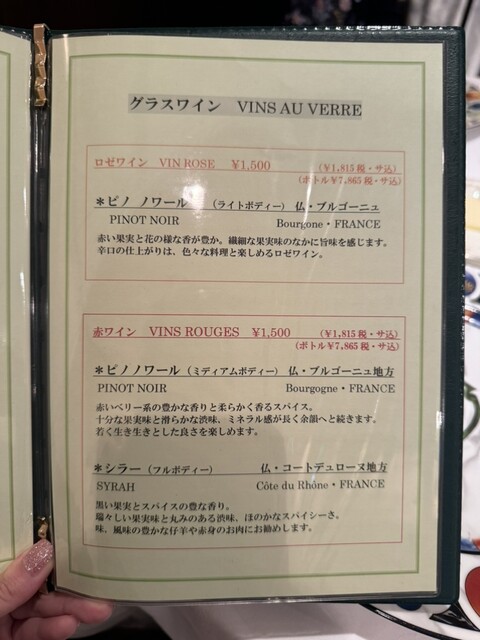 グラスワイン VINS AU VERRE
ロゼワイン VIN ROSE ¥1,500 (¥1,815 税・サ込)
(ボトル¥7,865 税・サ込)
＊ピノ ノワール (ライトボディー) 仏・ブルゴーニュ
PINOT NOIR Bourgone・FRANCE
赤い果実と花の様な香が豊か。繊細な果実味のなかに旨味を感じます。
辛口の仕上がりは、色々な料理と楽しめるロゼワイン。
赤ワイン VINS ROUGES ¥1,500 (¥1,815 税・サ込)
(ボトル¥7,865 税・サ込)
＊ピノノワール (ミディアムボディー) 仏・ブルゴーニュ地方
PINOT NOIR Bourgogne・FRANCE
赤いベリー系の豊かな香りと柔らかく香るスパイス。
十分な果実味と滑らかな渋味、ミネラル感が長く余韻へと続きます。
若く生き生きとした良さを楽しめます。
＊シラー (フルボディー) 仏・コートデュローヌ地方
SYRAH Côte du Rhône・FRANCE
黒い果実とスパイスの豊な香り。
瑞々しい果実味と丸みのある渋味、ほのかなスパイシーさ。
味、風味の豊かな仔羊や赤身のお肉にお勧めします。